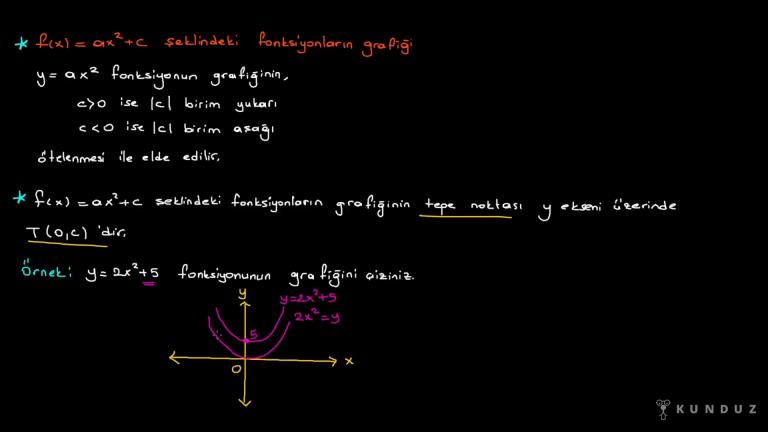 * f(x) = ax²+c şeklindeki fonksiyonların grafiği
y = ax² fonksiyonun grafiğinin,
c>0 ise |c| birim yukarı
c<0 ise |c| birim aşağı
ötelenmesi ile elde edilir.
* f(x) = ax²+c şeklindeki fonksiyonların grafiğinin tepe noktası y ekseni üzerinde
T(0,c)'dir.
Örnek: y = 2x²+5 fonksiyonunun grafiğini çiziniz.
y
y=2x²+5
2x²=y
5
x
0
KUNDUZ